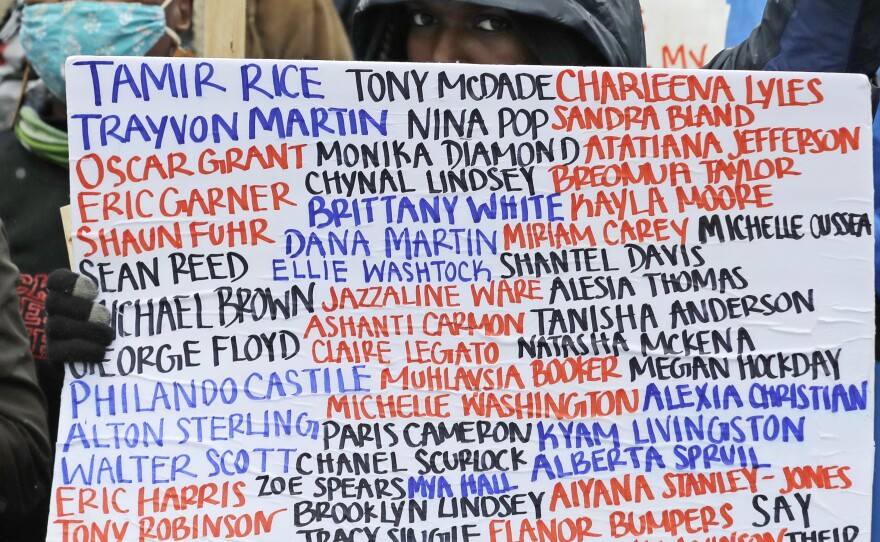 TAMIR RICE TONY McDADE CHARLEENA LYLES
TRAYVON MARTIN NINA POP SANDRA BLAND
OSCAR GRANT MONIKA DIAMOND ATATIANA JEFFERSON
ERIC GARNER CHYNAL LINDSEY BREONUA TAYLOR
BRITTANY WHITE KAYLA MOORE
SHAUN FUHR DANA MARTIN MIRIAM CAREY MICHELLE CUSSEA
SEAN REED ELLIE WASHTOCK SHANTEL DAVIS
MICHAEL BROWN JAZZALINE WARE ALESIA THOMAS
ASHANTI CARMON TANISHA ANDERSON
GEORGE FLOYD CLAIRE LEGIATO NATASHA McKENA
PHILANDO CASTILE MUHLAYSIA BOOKER MEGAN HOCKDAY
MICHELLE WASHINGTON ALEXIA CHRISTIAN
ALTON STERLING PARIS CAMERON KYAM LIVINGSTON
WALTER SCOTT CHANEL SCURLOCK ALBERTA SPRUIL
ERIC HARRIS ZOE SPEARS MYA HALL AIYANA STANLEY-JONES
TONY ROBINSON BROOKLYN LINDSEY SAY
TRACY SINGLE ELANOR BUMPERS THEIR
MY